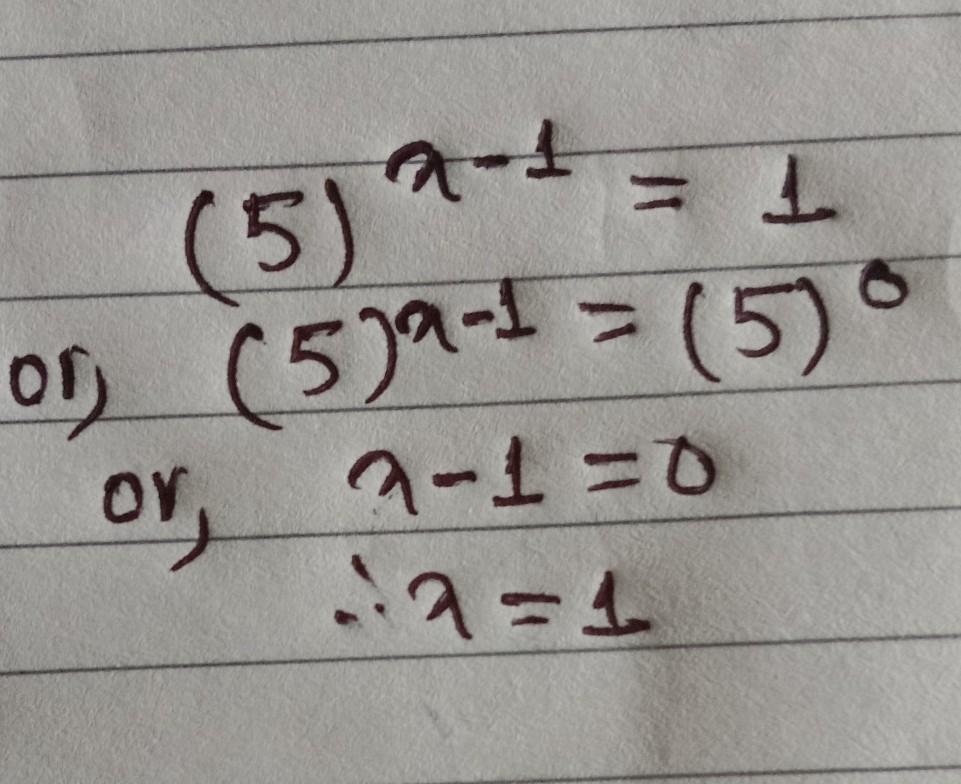 (5)^{x-1} = 1
or, (5)^{x-1} = (5)^0
or, x-1 = 0
∴ x = 1